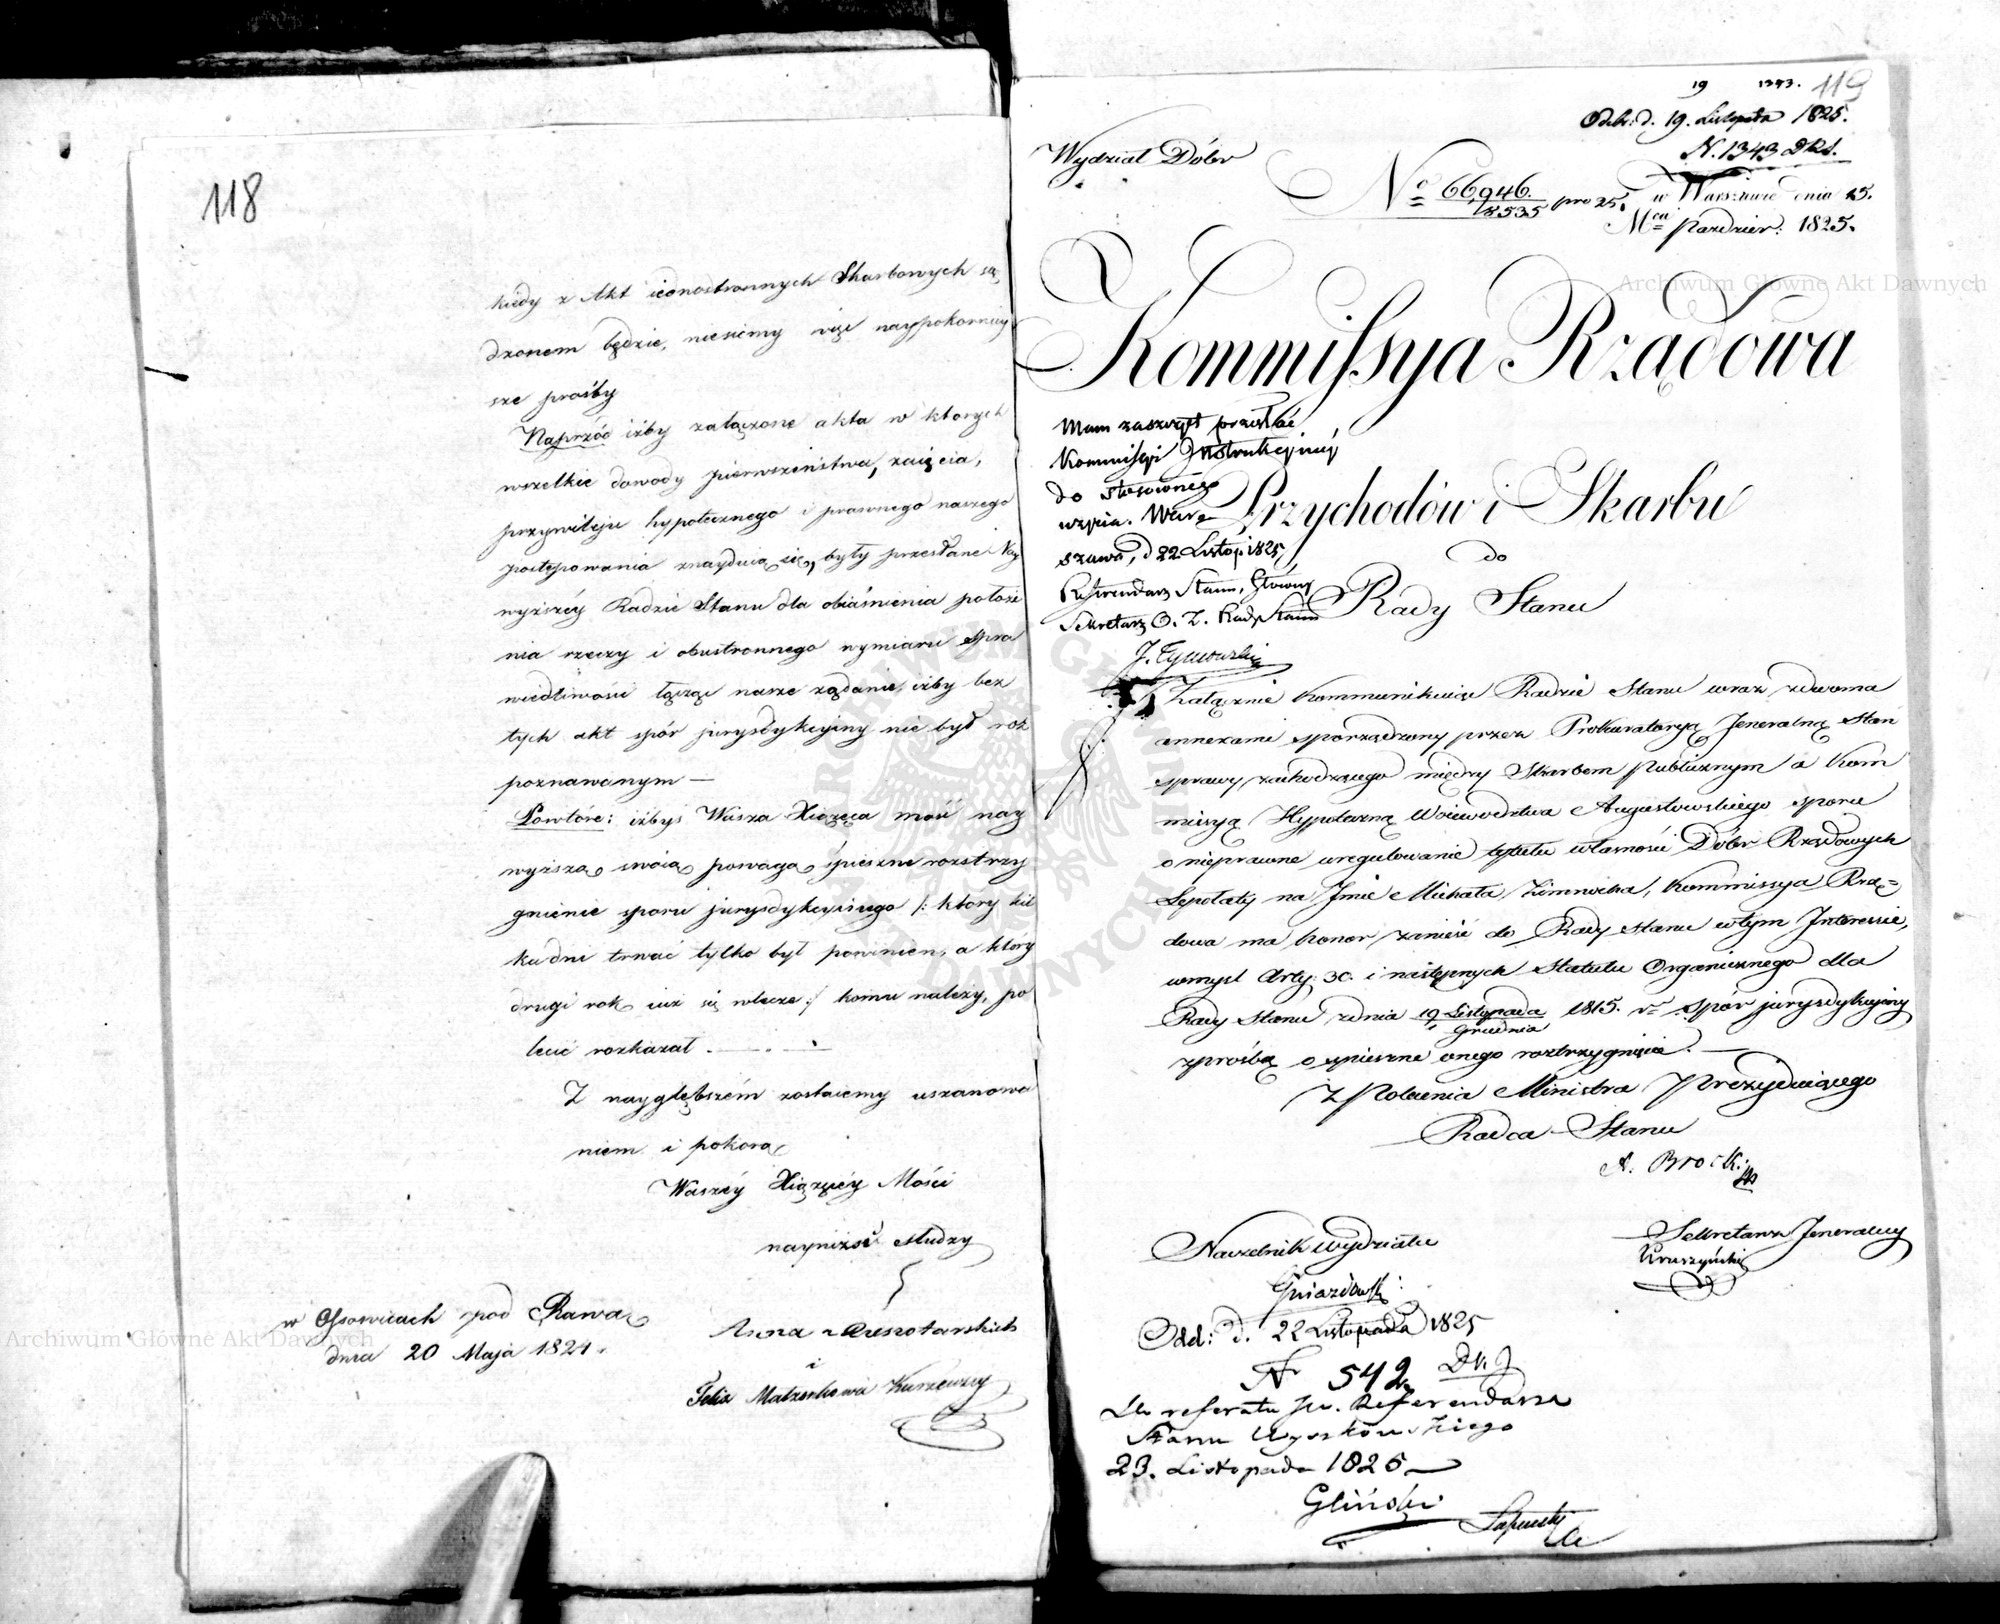 118
kiedy z Akt iednostronnych Skarbowych są
dzonem będzie, niesiemy więc naypokorniey
sze prośby
Naprzód iżby załączone akta w ktorych
wszelkie dowody pierwszeństwa, zaięcia,
przywileju hypotecznego i prawnego naszego
postępowania znayduią się, były przesłane Nay
wyższéy Radzie Stanu dla obiaśnienia położe
nia rzeczy i obustronnego wymiaru Spra
wiedliwości łącząc nasze żądanie, iżby bez
tych akt spór jurysdykcyiny nie był roz
poznawanym —
Powtóre: iżbyś Wasza Xiążęca mość nay
wyższą swoią powagą śpieszne rozstrzy
gnienie sporu jurysdykcyinego /: ktory kil
ka dni trwać tylko był powinien, a który
drugi rok iuż się wlecze :/ komu należy, po
lecić rozkazał.
Z nayglębszém zostaiemy uszanowa
niem i pokorą
Waszéy Xiążęcéy Mości
nayniżsi Słudzy
w Ossowicach pod Rawą
dnia 20 Maja 1824.
Anna z
i
Felix Małżonkowie
19 1343. 119
Odebr: d. 19. Listopada 1825.
N. 1343 DRS.
Wydział Dóbr
No 66946./18535 pro 25.
w Warszawie dnia 25.
Mca Pazdzier: 1825.
Kommissya Rządowa
Mam zaszczyt przesłać
Kommissyi Instrukcyinéy
do stosownego
użycia. War
szawa, d 22 Listop: 1825
Referendarz Stanu, Główny
Sekretarz O. Z. Rady Stanu
J. Tymowski
Przychodów i Skarbu
do
Rady Stanu
Załącznie kommunikuiąc Radzie Stanu wraz zdwoma
annexami sporządzony przez Prokuratoryą Jeneralną Stan
sprawy, zachodzącego między Skarbem Publicznym a Kom
missyą Hypoteczną Woiewodztwa Augustowskiego sporu
o nieprawne uregulowanie tytułu własności Dóbr Rządowych
na Jmie Michała, Kommissya Rzą=
dowa ma honor zanieść do Rady Stanu w tym Interessie,
wmysl Arty: 30. i następnych Statutu Organicznego dla
Rady Stanu zdnia 19 Listopada/1 Grudnia 1815. r. Spór jurysdykcyiny
zprośbą o spieszne onego roztrzygnięcie. —
Z Polecenia Ministra Prezyduiącego
Radca Stanu
A. Brocki
Naczelnik Wydziału
Gniazdowski
Sekretarz Jeneralny
Kruszyński
Odd: d. 22 Listopada 1825
Nr 542 DKJ
Do referatu JW. Referendarza
Stanu Wyczechowskiego
23. Listopada 1825 —
Gliński
Archiwum Główne Akt Dawnych
Archiwum Główne Akt Dawnych
ARCHIWUM GŁÓWNE AKT DAWNYCH